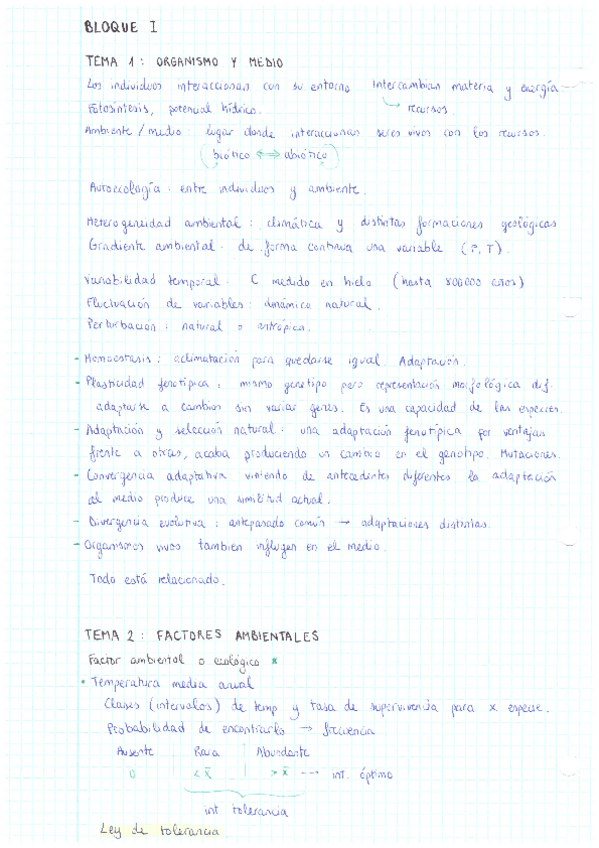 BLOQUE I
TEMA 1: ORGANISMO Y MEDIO
Los individuos interaccionan con su entorno Intercambian materia y energía
Fotosíntesis, potencial hídrico. recursos.
Ambiente / medio: lugar donde interaccionan seres vivos con los recursos.
(biótico ⟷ abiótico)
Autoecología: entre individuos y ambiente.
Heterogeneidad ambiental: climática y distintas formaciones geológicas
Gradiente ambiental. de forma continua una variable (P, T).
Variabilidad temporal. C medido en hielo (hasta 800000 años)
Fluctuación de variables: dinámica natural.
Perturbación: natural o antrópica.
- Homeostasis: aclimatación para quedarse igual. Adaptación.
- Plasticidad fenotípica: mismo genotipo pero representación morfológica dif.
adaptarse a cambios sin variar genes. Es una capacidad de las especies.
- Adaptación y selección natural: una adaptación fenotípica por ventajas
frente a otras, acaba produciendo un cambio en el genotipo. Mutaciones.
- Convergencia adaptativa viniendo de antecedentes diferentes la adaptación
al medio produce una similitud actual.
- Divergencia evolutiva: antepasado común → adaptaciones distintas.
- Organismos vivos también influyen en el medio.
Todo está relacionado.
TEMA 2: FACTORES AMBIENTALES
Factor ambiental o ecológico *
• Temperatura media anual
Clases (intervalos) de temp y tasa de supervivencia para x especie.
Probabilidad de encontrarlo → frecuencia
Ausente Rara Abundante
0 < x̄ > x̄ --→ int. óptimo
int tolerancia
Ley de tolerancia